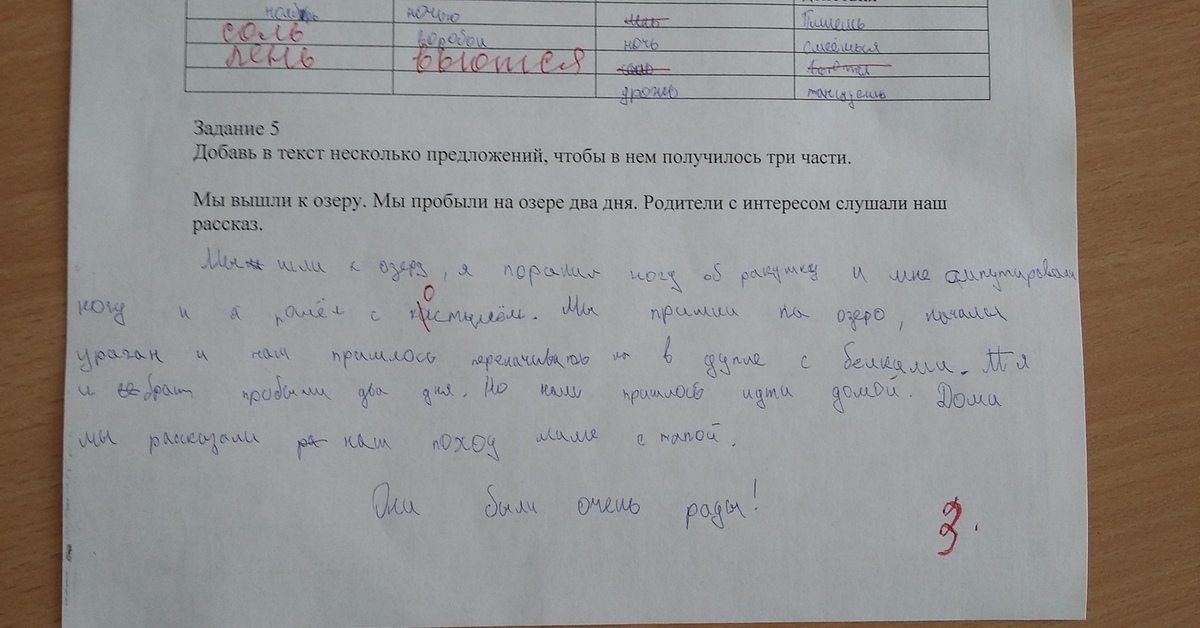 ночью Пишешь
соль воробьи ночь смеёшься
лень вьются
дрожь танцуешь
Задание 5
Добавь в текст несколько предложений, чтобы в нем получилось три части.
Мы вышли к озеру. Мы пробыли на озере два дня. Родители с интересом слушали наш
рассказ.
Мы шли к озеру, я поранил ногу об ракушку и мне ампутировали
ногу и я пошёл с костылём. Мы пришли на озеро, начался
ураган и нам пришлось переначивать в дупле с белками. Я
и брат пробыли два дня. Но нам пришлось идти домой. Дома
мы рассказали наш поход маме с папой.
Они были очень рады!
3.